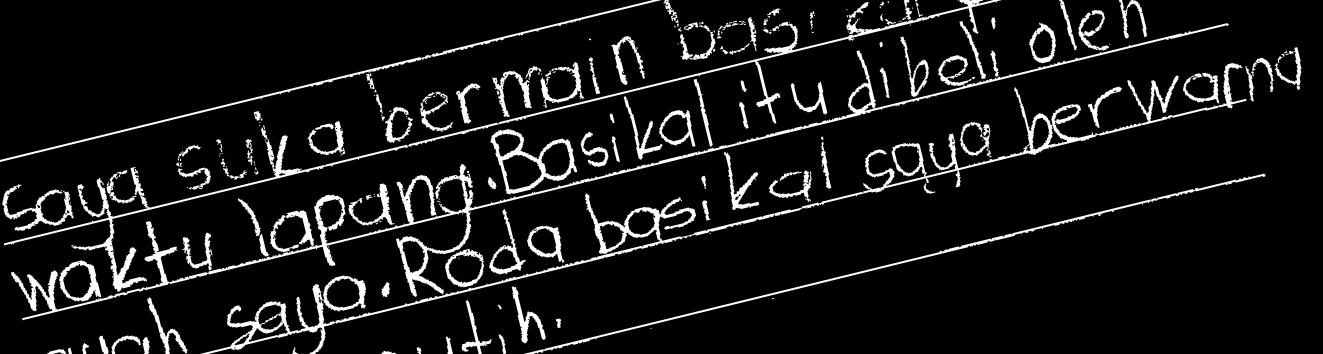 saya suka bermain basikal
waktu lapang. Basikal itu dibeli oleh
ayah saya. Roda basikal saya berwarna
putih.